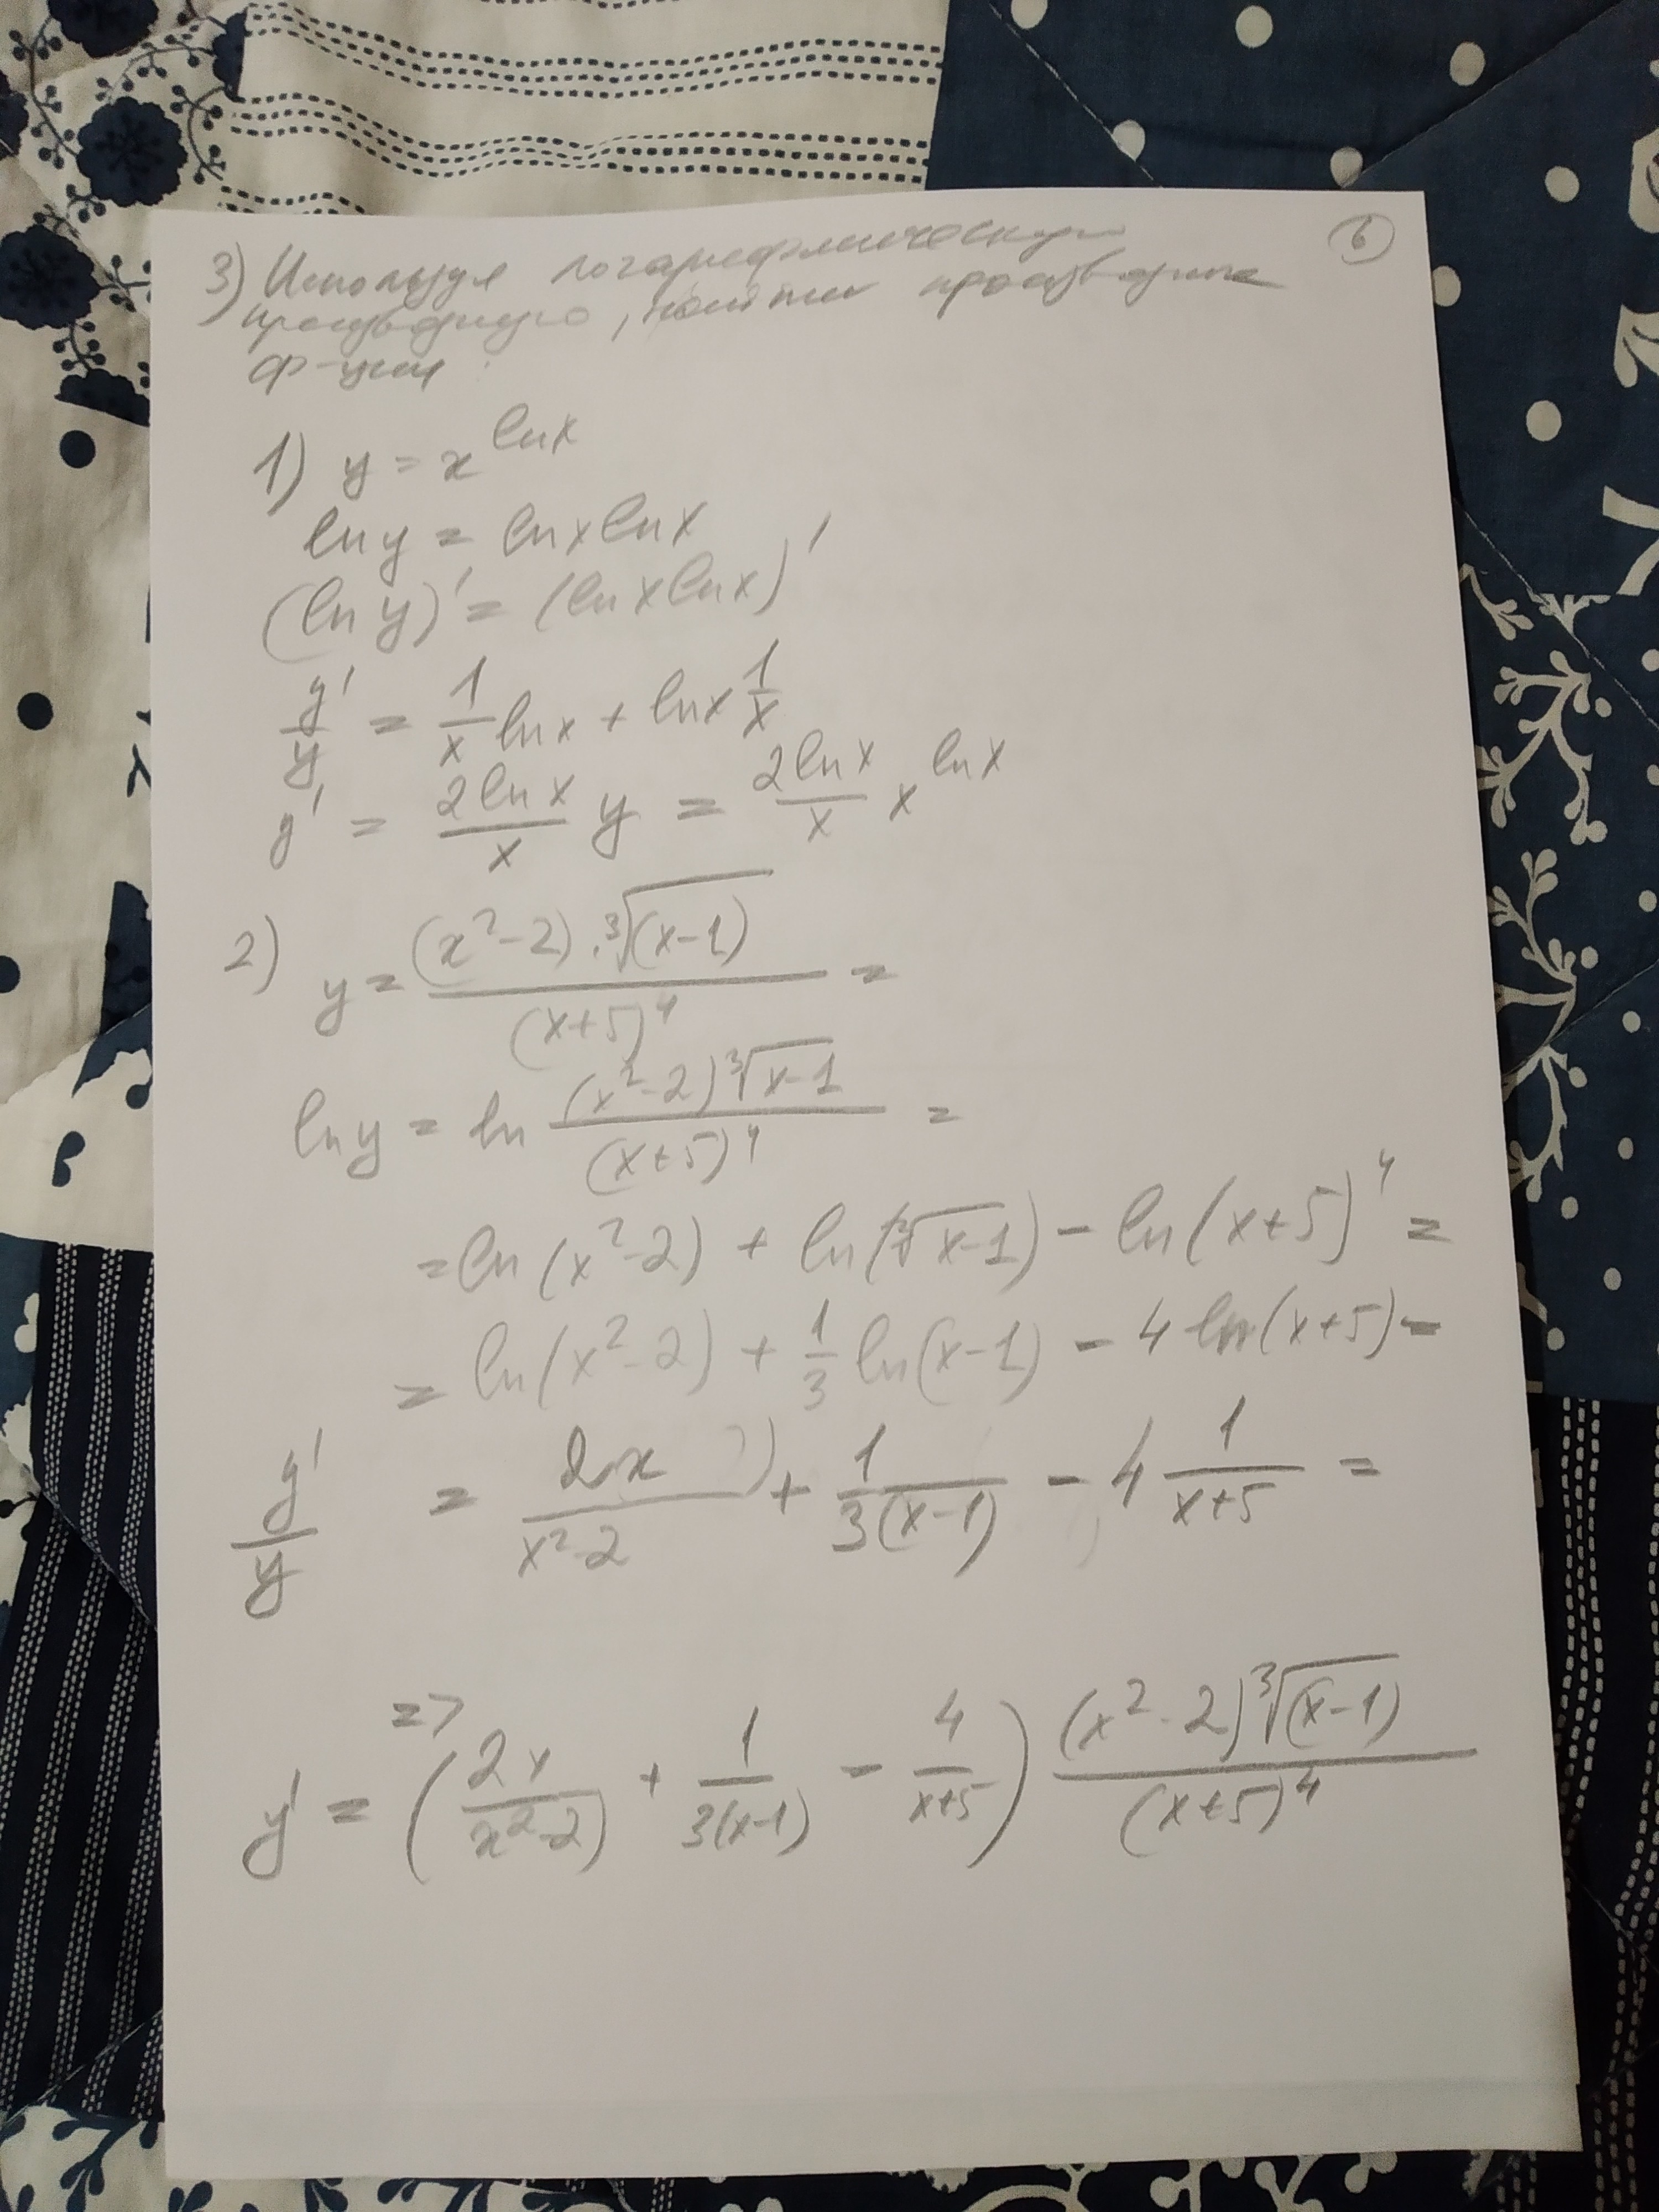 6
3) Используя логарифмическую
производную, найти производные
ф-ции:
1) y = x^{ln x}
ln y = ln x ln x
(ln y)' = (ln x ln x)'
y'/y = 1/x ln x + ln x 1/x
y' = 2 ln x / x y = 2 ln x / x x^{ln x}
2) y = (x² - 2) · ∛(x-1) / (x+5)⁴ =
ln y = ln (x² - 2) ∛x-1 / (x+5)⁴ =
= ln (x² - 2) + ln (∛x-1) - ln (x+5)⁴ =
= ln (x² - 2) + 1/3 ln (x-1) - 4 ln (x+5) =
y'/y = 2x / x² - 2 + 1 / 3(x-1) - 4 1 / x+5 =
=>
y' = (2x / x² - 2) + 1 / 3(x-1) - 4 / x+5) (x² - 2) ∛(x-1) / (x+5)⁴